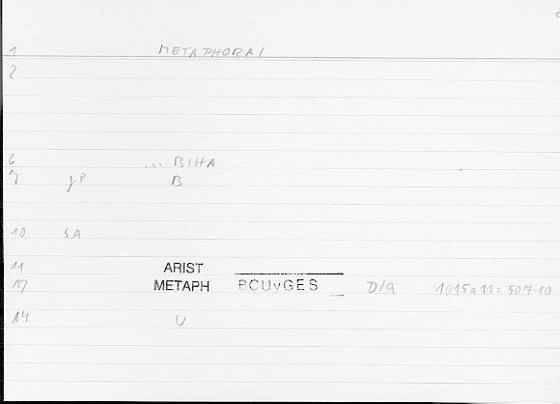 1 METAPHORAI
2
6 ... BIHA
7 γP B
10 SA
11 ARIST
12 METAPH BCUvGES D/9 1015a11: 507.10
14 U